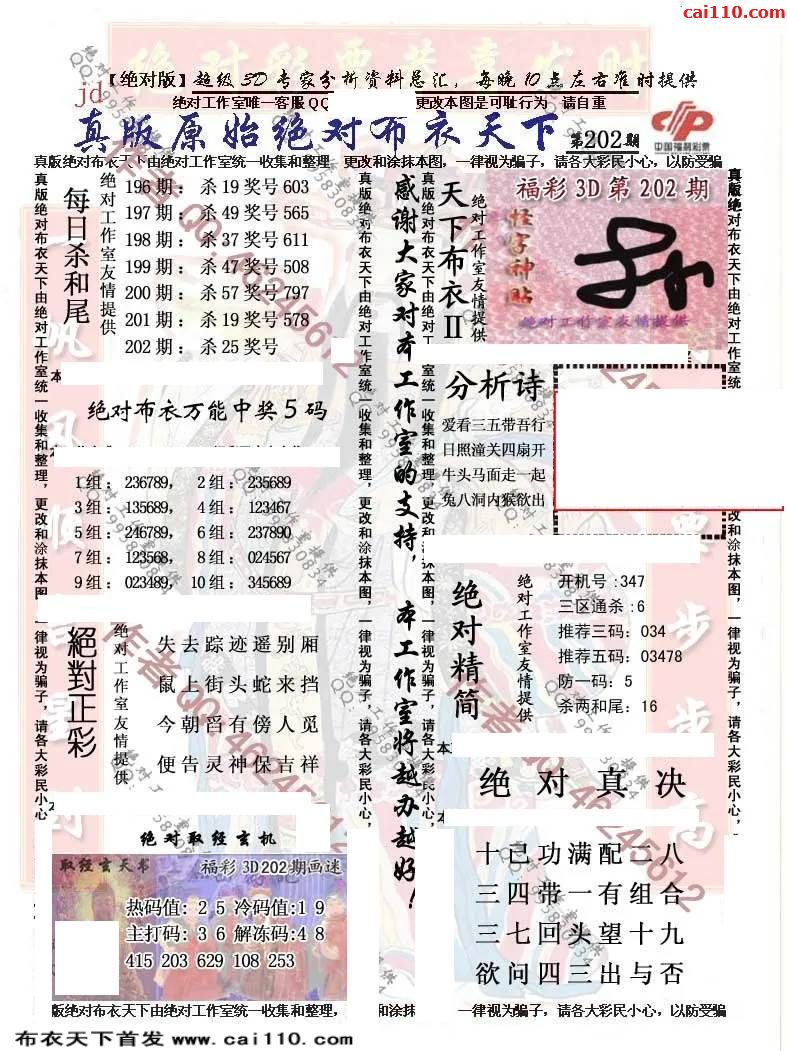 cai110.com
绝对彩票共享发财
jd【绝对版】超级3D专家分析资料总汇，每晚10点左右准时提供
绝对工作室唯一客服QQ 更改本图是可耻行为 请自重
真版原始绝对布衣天下 第202期
中国福利彩票
真版绝对布衣天下由绝对工作室统一收集和整理 更改和涂抹本图，一律视为骗子，请各大彩民小心，以防受骗
真版绝对布衣天下由绝对工作室统一收集和整理，更改和涂抹本图，一律视为骗子，请各大彩民小心，
每日杀和尾
绝对工作室友情提供
196期：杀19奖号603
197期：杀49奖号565
198期：杀37奖号611
199期：杀47奖号508
200期：杀57奖号797
201期：杀19奖号578
202期：杀25奖号
绝对布衣万能中奖5码
1组：236789，2组：235689
3组：135689，4组：123467
5组：246789，6组：237890
7组：123568，8组：024567
9组：023489，10组：345689
絕對正彩
绝对工作室友情提供
失去踪迹遥别厢
鼠上街头蛇来挡
今朝舀有傍人觅
便告灵神保吉祥
绝对取经玄机
取经玄天书
福彩3D202期画迷
热码值：25冷码值:19
主打码：36解冻码:48
415 203 629 108 253
真版绝对布衣天下由绝对工作室统一收集和整理，更改和涂抹本图，一律视为骗子，请各大彩民小心，
感谢大家对本工作室的支持，本工作室将越办越好！
真版绝对布衣天下由绝对工作室统一收集和整理，更改和涂抹本图，一律视为骗子，请各大彩民小心，
天下布衣II
绝对工作室友情提供
福彩3D第202期
怪字神贴
绝对工作室友情提供
分析诗
爱看三五带吾行
日照潼关四扇开
牛头马面走一起
兔八洞内猴欲出
绝对精简
绝对工作室友情提供
开机号:347
三区通杀:6
推荐三码：034
推荐五码：03478
防一码：5
杀两和尾：16
绝对真决
十己功满配二八
三四带一有组合
三七回头望十九
欲问四三出与否
真版绝对布衣天下由绝对工作室统一收集和整理，更改和涂抹本图，一律视为骗子，请各大彩民小心，
版绝对布衣天下由绝对工作室统一收集和整理， 和涂抹本 一律视为骗子，请各大彩民小心，以防受骗
作者QQ:46245612
布衣天下首发 www.cai110.com